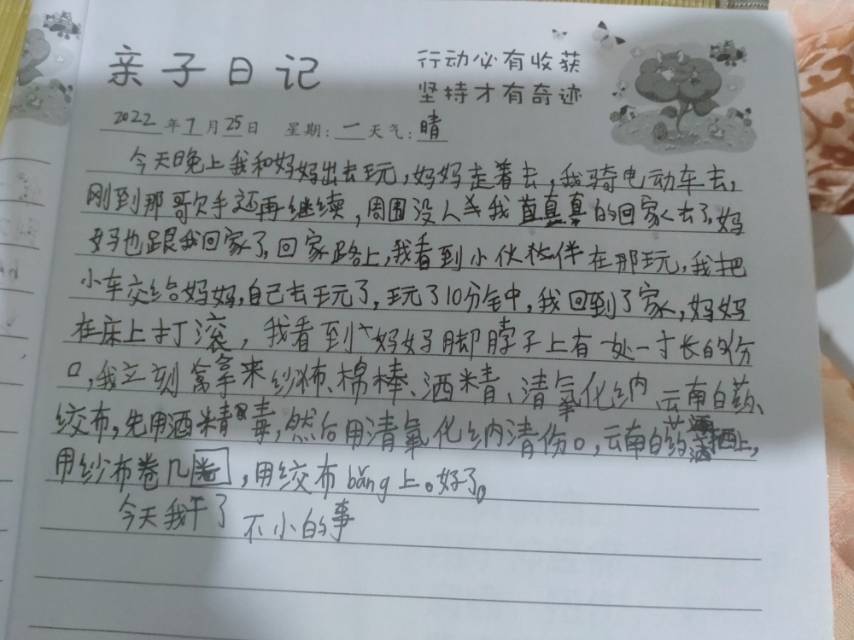 亲子日记
行动必有收获
坚持才有奇迹
2022年7月25日 星期:一天气:晴
今天晚上我和妈妈出去玩,妈妈走着去,我骑电动车去,
刚到那歌手还再继续,周围没人我直真真的回家去了,妈
妈也跟我回家了,回家路上,我看到小伙伴在那玩,我把
小车交给妈妈,自己去玩了,玩了10分钟,我回到了家,妈妈
在床上打滚,我看到妈妈脚脖子上有一处一寸长的伤
口,我立刻拿来纱布、棉棒、酒精、清氧化纳、云南白药、
绞布,先用酒精毒,然后用清氧化纳清伤口,云南白药洒上,
用纱布卷几圈,用绞布bǎng上。好了。
今天我干了不小的事